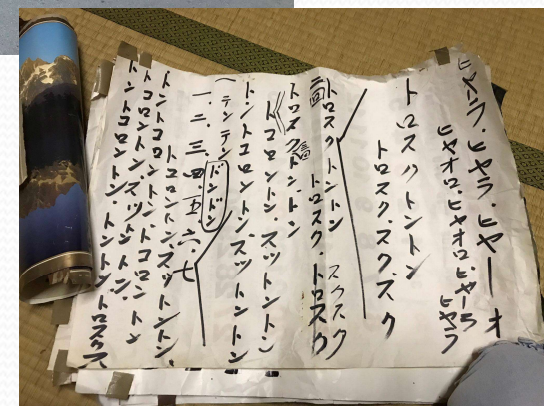 ヒヤラ・ヒヤラ・ヒヤーオ
ヒヤオロ・ヒヤオロヒヤーラ
ヒヤラ
トロスクトントン
トロスクスクスク
トロスクトントン スクスク
二回 トロスク・トロスク
トロスクトン・トン
トコロントン・スットントン
トントコロントン・スットントン
(テンテン ドンドン
一・二・三・四・五・六・七
トコロントン・スットントン・
トントコロントン・トントコロントン
トコロントン・スットントン・
トントコロントン・トントントロスクス